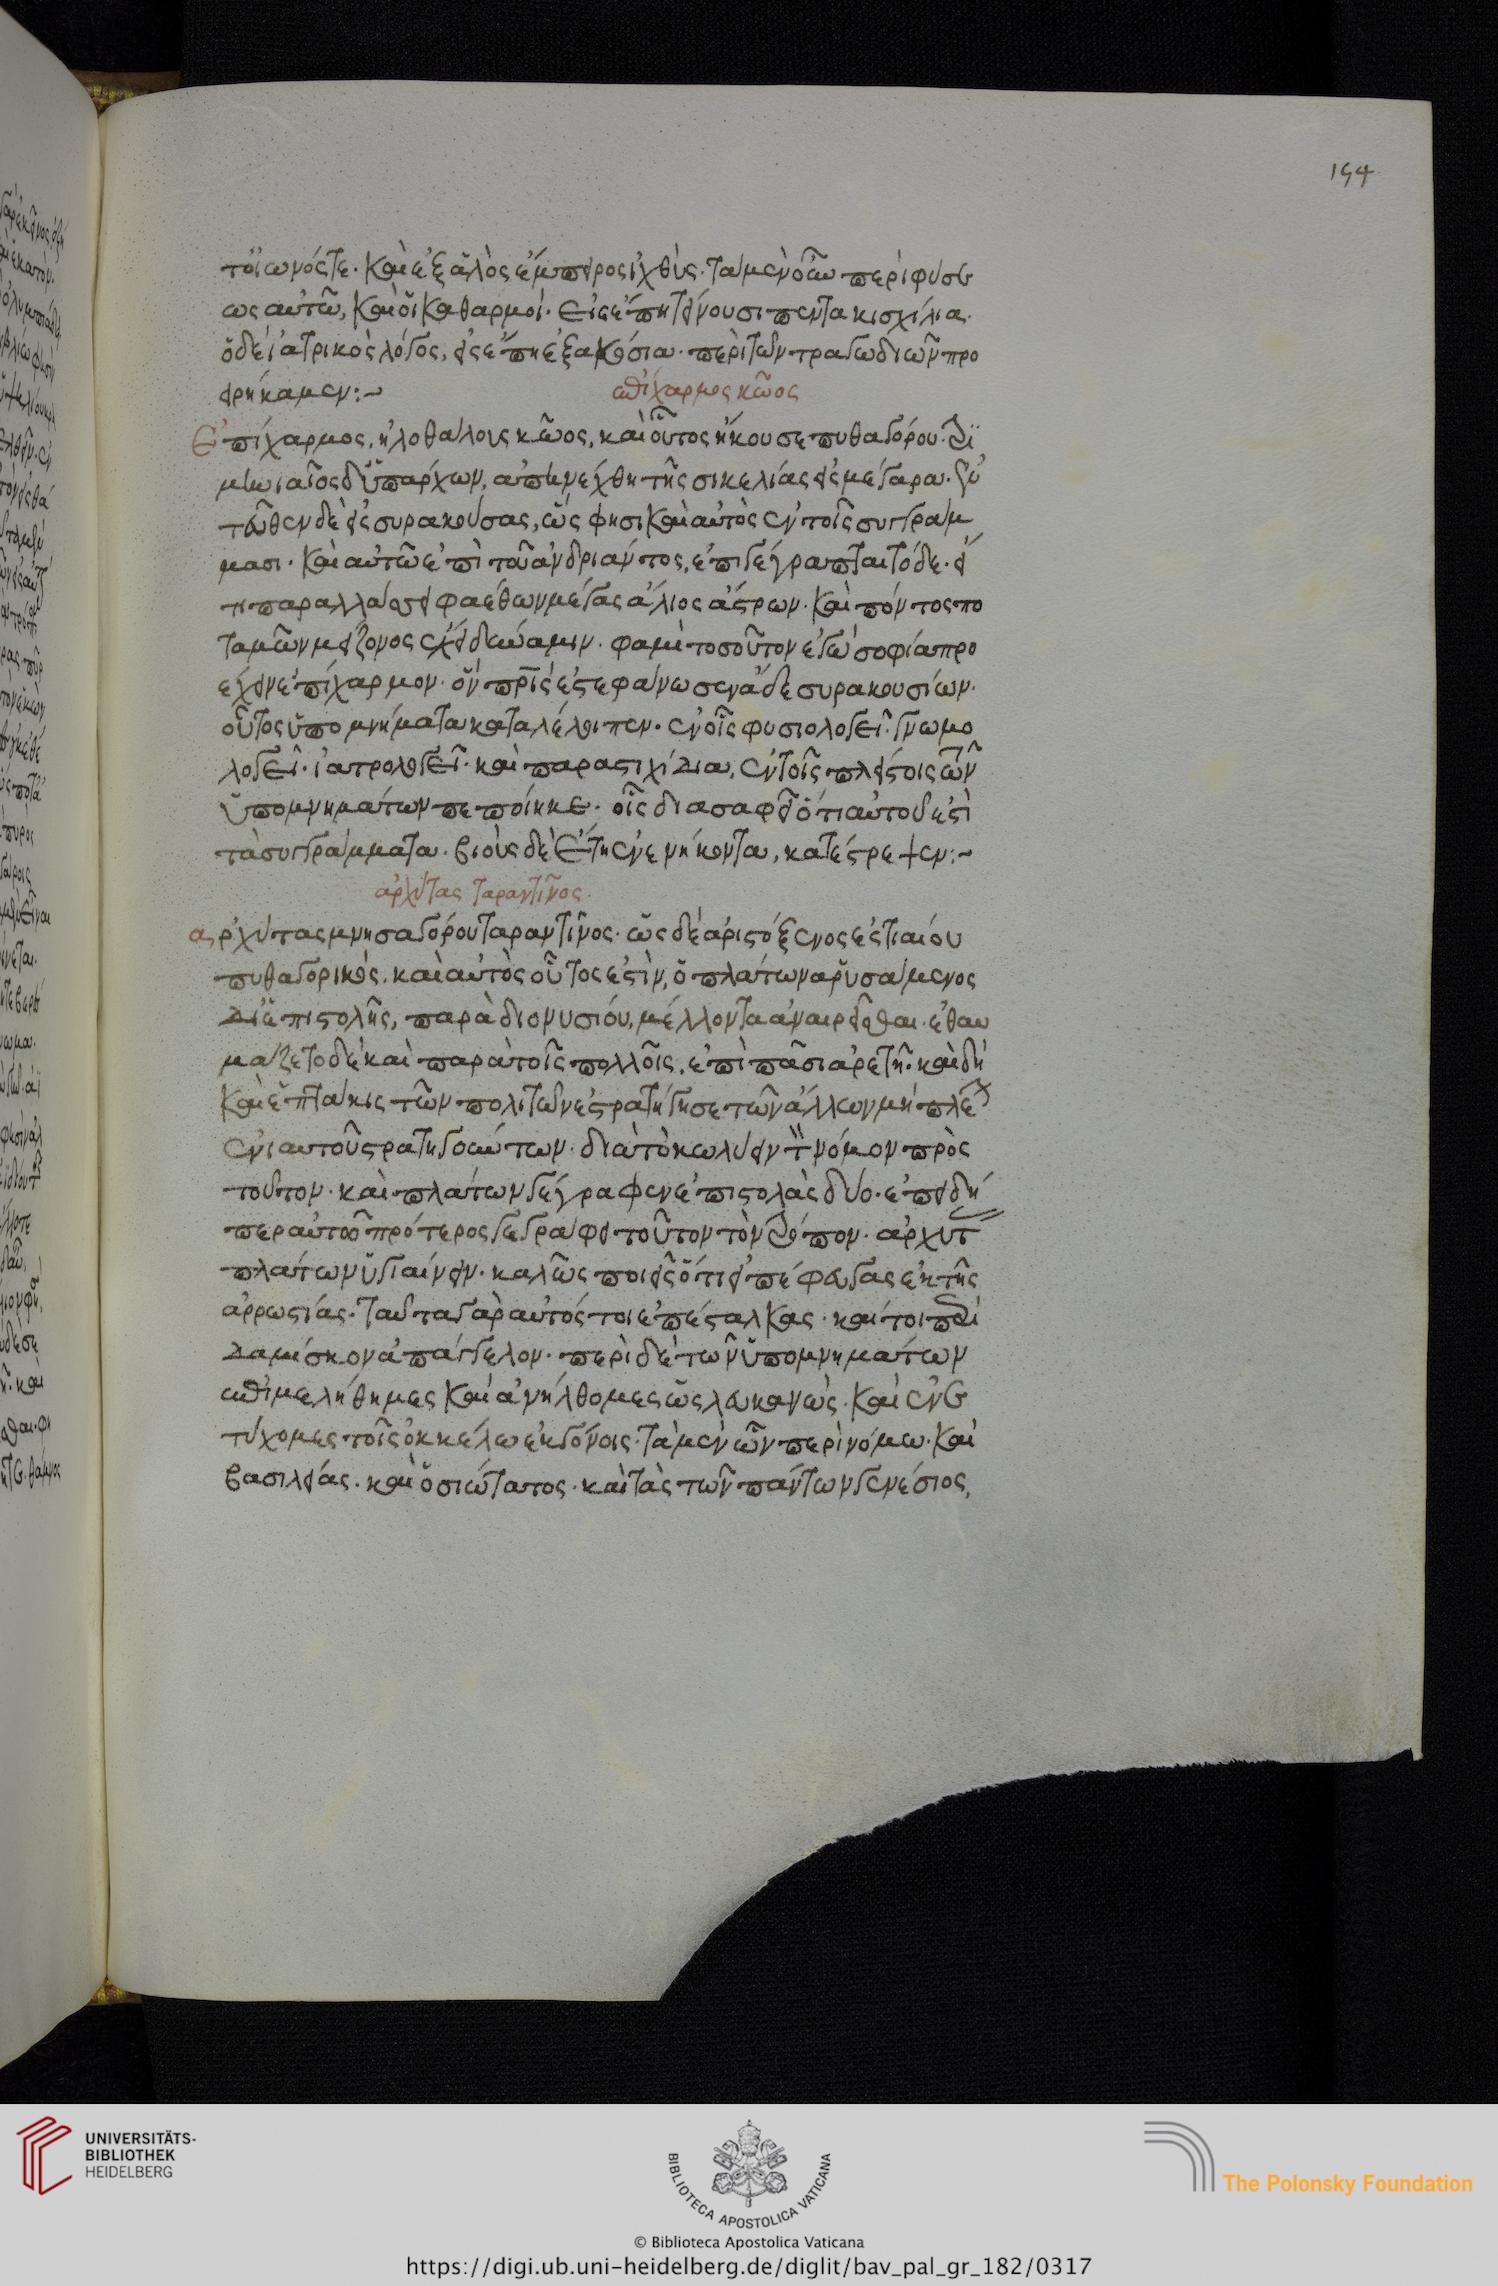 194
τ' οἰωνός τε. καὶ ἐξ ἁλὸς ἔμπυρος ἰχθύς. τὰ μὲν οὖν περὶ φύσε
ως αὐτῶ, καὶ οἱ καθαρμοὶ. εἰς ἔπη τείνουσι πεντακισχίλια.
ὁ δὲ ἰατρικὸς λόγος, εἰς ἔπη ἑξακόσια. περὶ τῶν τραγωδιῶν προ
ειρήκαμεν:~
ἐπίχαρμος κῶος
Ἐπίχαρμος, ἡλοθάλους κῶος, καὶ οὗτος ἤκουσε πυθαγόρου. τρι
μηνιαῖος δ' ὑπάρχων, ἀπηνέχθη τῆς σικελίας εἰς μέγαρα. ἐν
τεῦθεν δὲ εἰς συρακούσας, ὥς φησι καὶ αὐτὸς ἐν τοῖς συγγράμ
μασι. καὶ αὐτῶ ἐπὶ τοῦ ἀνδριάντος, ἐπιγέγραπται τόδε. εἴ
τι παραλλάσσει φαέθων μέγας ἅλιος ἄστρων. καὶ πόντος πο
ταμῶν μείζονος ἔχει δύναμιν. φαμὶ τοσοῦτον ἐγὼ σοφία προ
έχειν ἐπίχαρμον. ὃν πρὶς ἐστεφάνωσεν ἅδε συρακουσίων.
οὗτος ὑπομνήματα καταλέλοιπεν. ἐν οἷς φυσιολογεῖ. γνωμο
λογεῖ. ἰατρολογεῖ. καὶ παραστιχίδια, ἐν τοῖς πλείστοις τῶν
ὑπομνημάτων πεποίηκε. οἷς διασαφεῖ ὅτι αὐτοῦ ἐστὶ
τὰ συγγράμματα. βιοὺς δὲ ἔτη ἐνενήκοντα, κατέστρεψεν:~
ἀρχύτας ταραντῖνος.
αρχύτας μνησαγόρου ταραντῖνος. ὡς δὲ ἀριστόξενος ἑστιαίου
πυθαγορικὸς. καὶ αὐτὸς οὗτος ἐστὶν, ὁ πλάτωνα ῥυσάμενος
δι' ἐπιστολῆς, παρὰ διονυσίου, μέλλοντα ἀναιρεῖσθαι. ἐθαυ
μάζετο δὲ καὶ παρὰ τοῖς πολλοῖς, ἐπὶ πᾶσι ἀρετῆ. καὶ δὴ
καὶ ἑπτάκις τῶν πολιτῶν ἐστρατήγησε τῶν ἄλλων μὴ πλέον
ἐνιαυτοῦ στρατηγούντων. διὰ τὸ κωλύειν τὸν νόμον πρὸς
τοῦτον. καὶ πλάτων γέγραφεν ἐπιστολὰς δύο. ἐπειδή
περ αὐτοῦ πρότερος γεγράφει τοῦτον τὸν τρόπον. ἀρχύτ
πλάτων ὑγιαίνειν. καλῶς ποιεῖς ὅτι ἀπέφευγας ἐκ τῆς
ἀρρωστίας. ταῦτα γὰρ αὐτός τοι ἐπέσταλκας. καί τοι περὶ
δαμίσκον ἀπάγγελον. περὶ δὲ τῶν ὑπομνημάτων
ἐπιμελήθημες καὶ ἀνήλθομες ὡς λευκανὼς. καὶ ἐνε
τύχομες τοῖς ὀκκέλω ἐκγόνοις. τὰ μὲν ὦν περὶ νόμω. καὶ
βασιλείας. καὶ ὁσιώτατος. καὶ τᾶς τῶν πάντων γενέσιος,
UNIVERSITÄTS-
BIBLIOTHEK
HEIDELBERG
BIBLIOTECA APOSTOLICA VATICANA
The Polonsky Foundation
© Biblioteca Apostolica Vaticana
https://digi.ub.uni-heidelberg.de/diglit/bav_pal_gr_182/0317